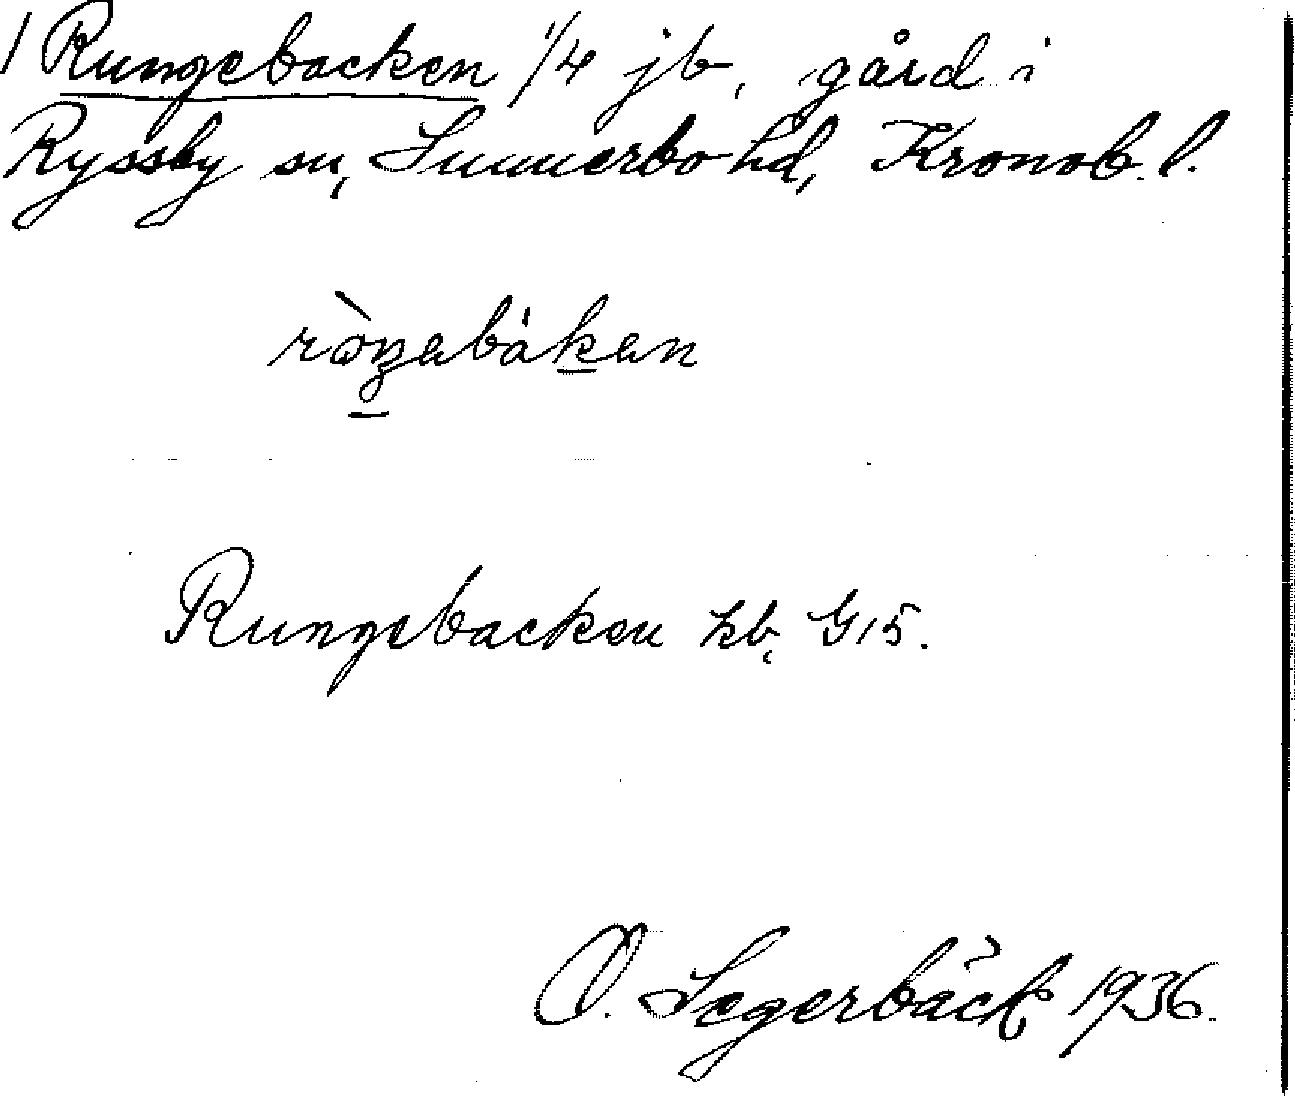 1 Rungebacken 1/4 jb, gård i
Ryssby sn, Sunnerbo hd, Kronob. l.
Rungebacken hb. G15.
O. Segerbäck 1936.